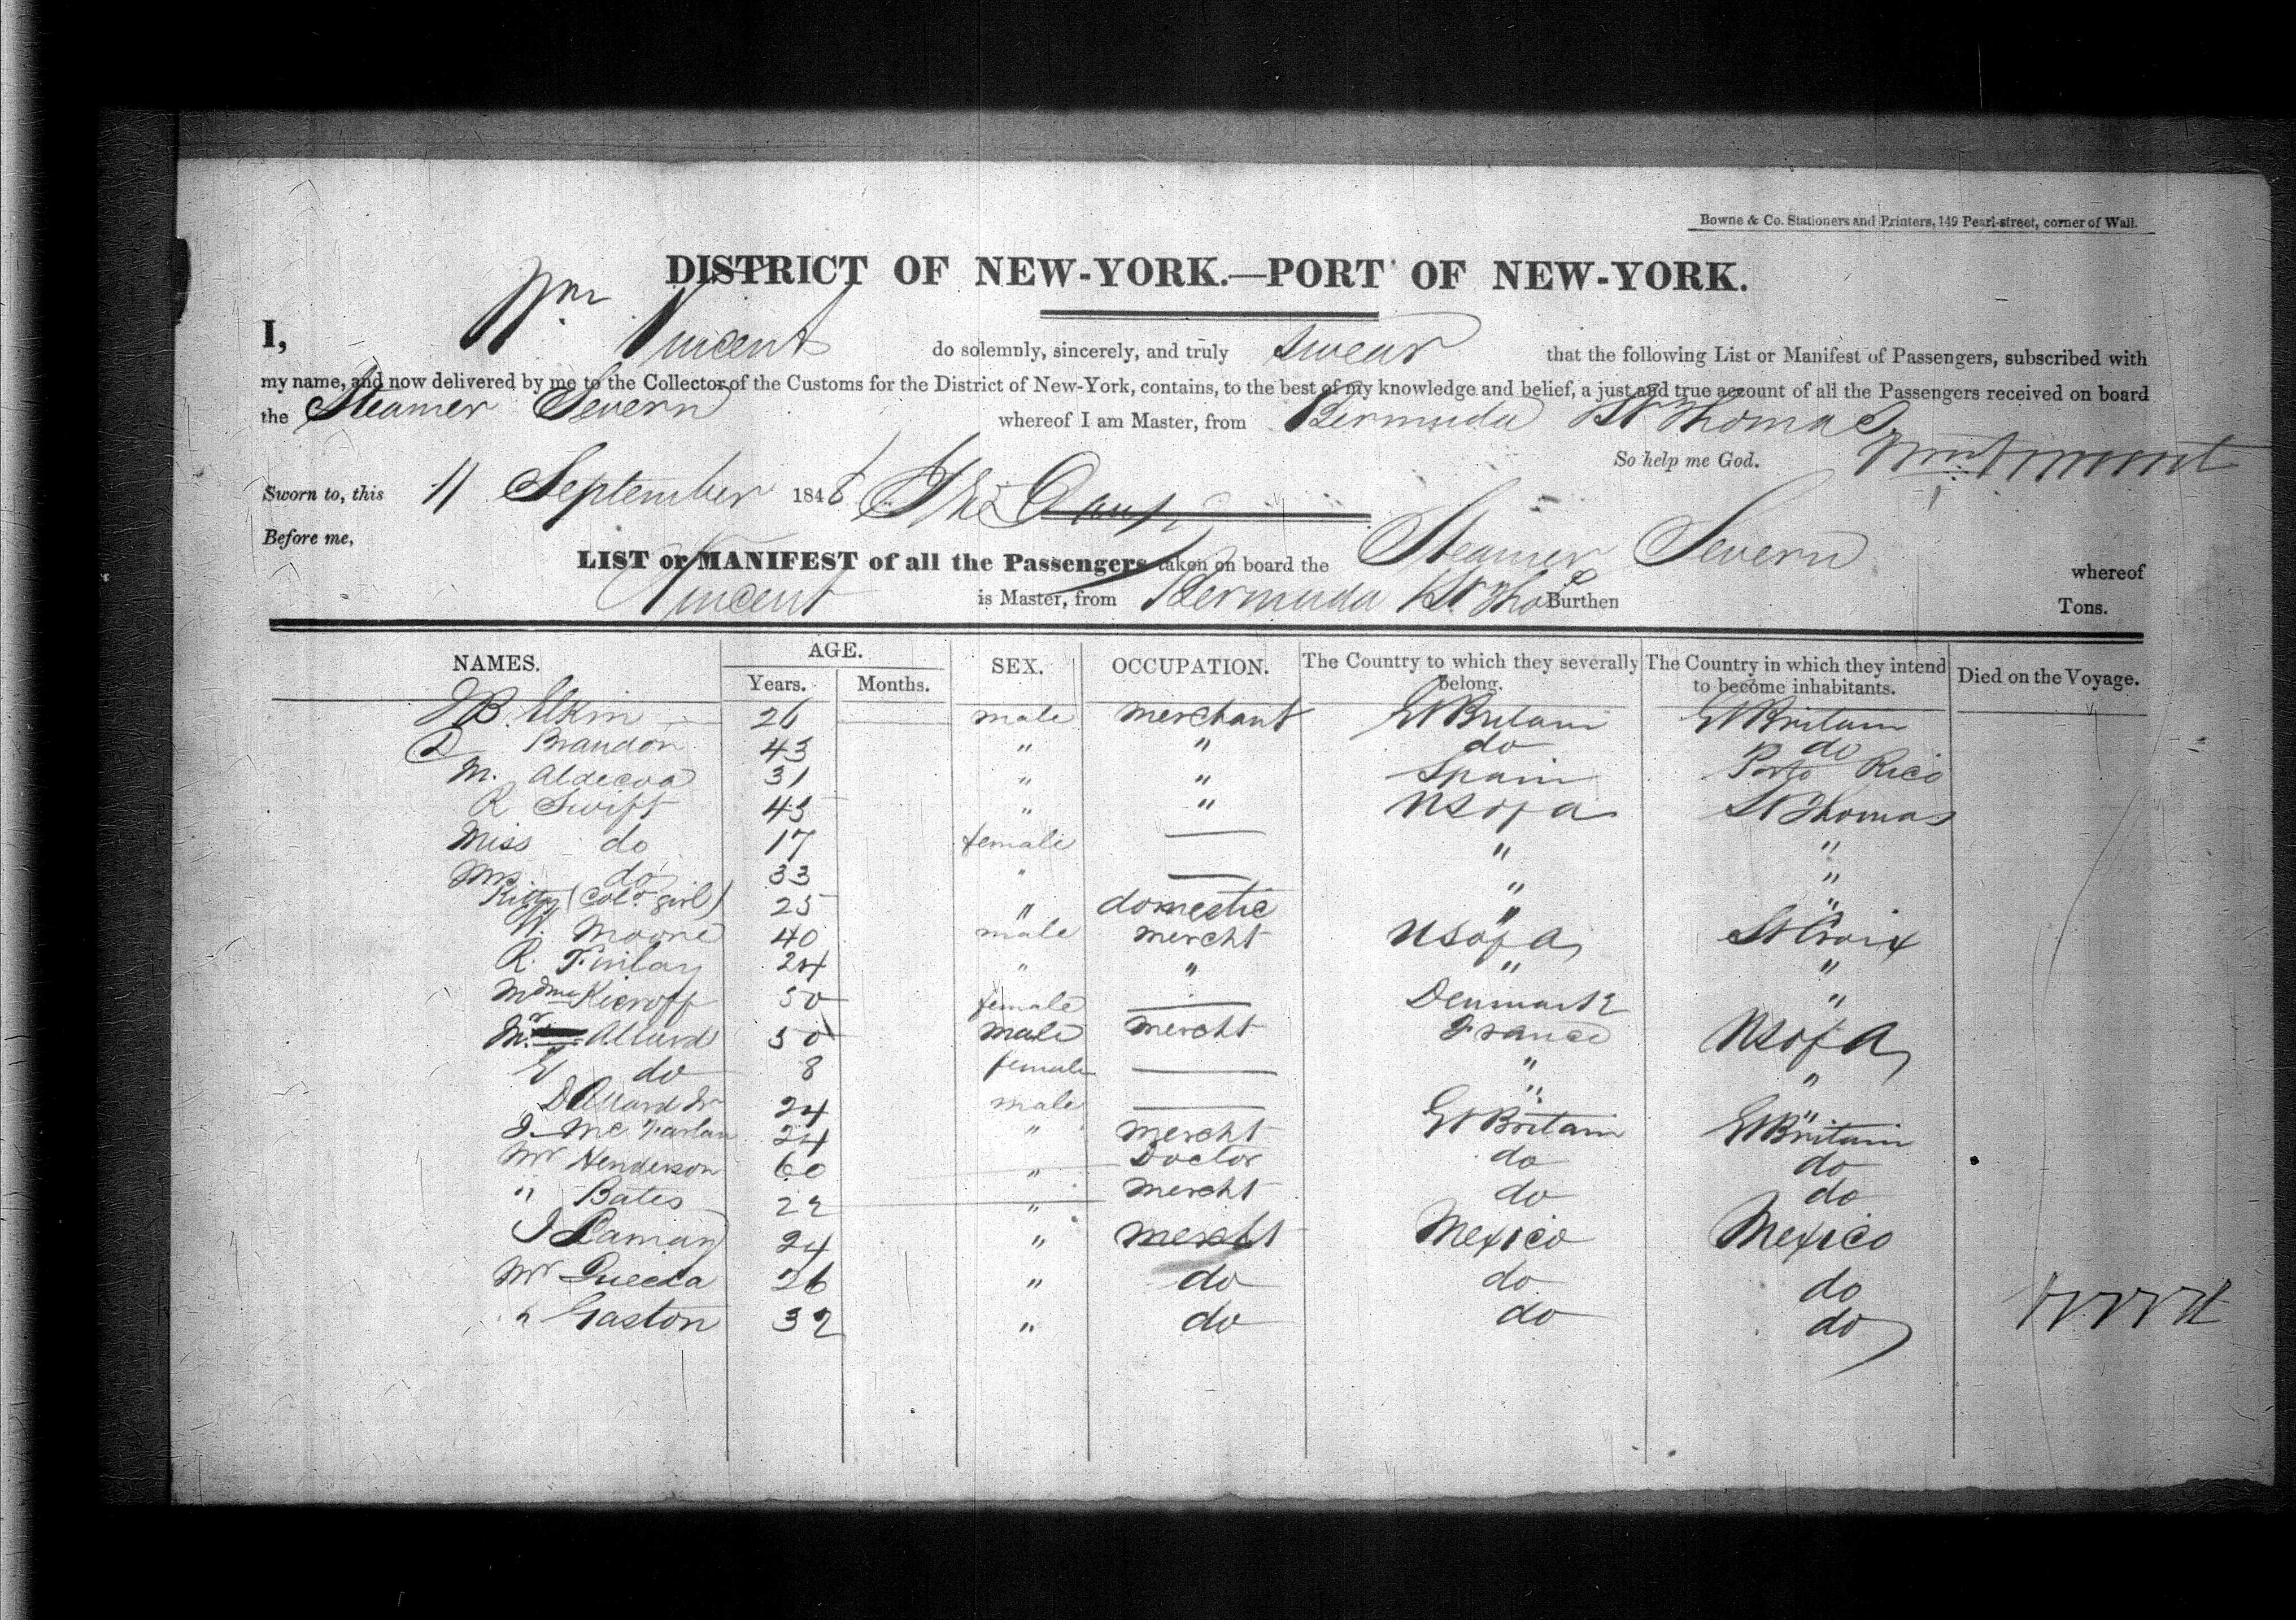 Bowne & Co. Stationers and Printers, 149 Pearl-street, corner of Wall.
DISTRICT OF NEW-YORK.—PORT OF NEW-YORK.
I, Wm Vincent do solemnly, sincerely, and truly swear that the following List or Manifest of Passengers, subscribed with
my name, and now delivered by me to the Collector of the Customs for the District of New-York, contains, to the best of my knowledge and belief, a just and true account of all the Passengers received on board
the Steamer Severn whereof I am Master, from Bermuda St Thomas
So help me God.
Sworn to, this 11 September 1848
Before me,
LIST or MANIFEST of all the Passengers taken on board the Steamer Severn whereof
Vincent is Master, from Bermuda St Thos Burthen Tons.
NAMES. AGE. Years. Months. SEX. OCCUPATION. The Country to which they severally belong. The Country in which they intend to become inhabitants. Died on the Voyage.
J B. Elkin 26 male merchant Gt Britain Gt Britain
D Brandon 43 " " do do
M. Aldecoa 31 " " Spain Porto Rico
R Swift 45 " " U S of a St Thomas
Miss do 17 female — " "
Mrs do 33 " — " "
Kitty (Cold girl) 25 " domestic " "
W. Moore 40 male mercht U S of A St Croix
R. Finlay 24 " " " "
Mdme 50 female — Denmark "
Mr Allard 50 male mercht France U S of A
E do 8 female — " "
D Allard Jr 24 male — " "
J Mc Farlan 24 " mercht Gt Britain Gt Britain
Mr Henderson 60 " Doctor do do
" Bates 22 " mercht do do
J 24 " mercht Mexico Mexico
Mr 26 " do do do
" Gaston 32 " do do do